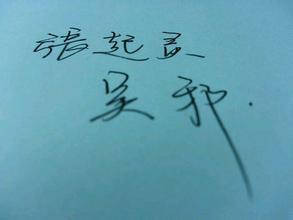 張起灵
吴邪.